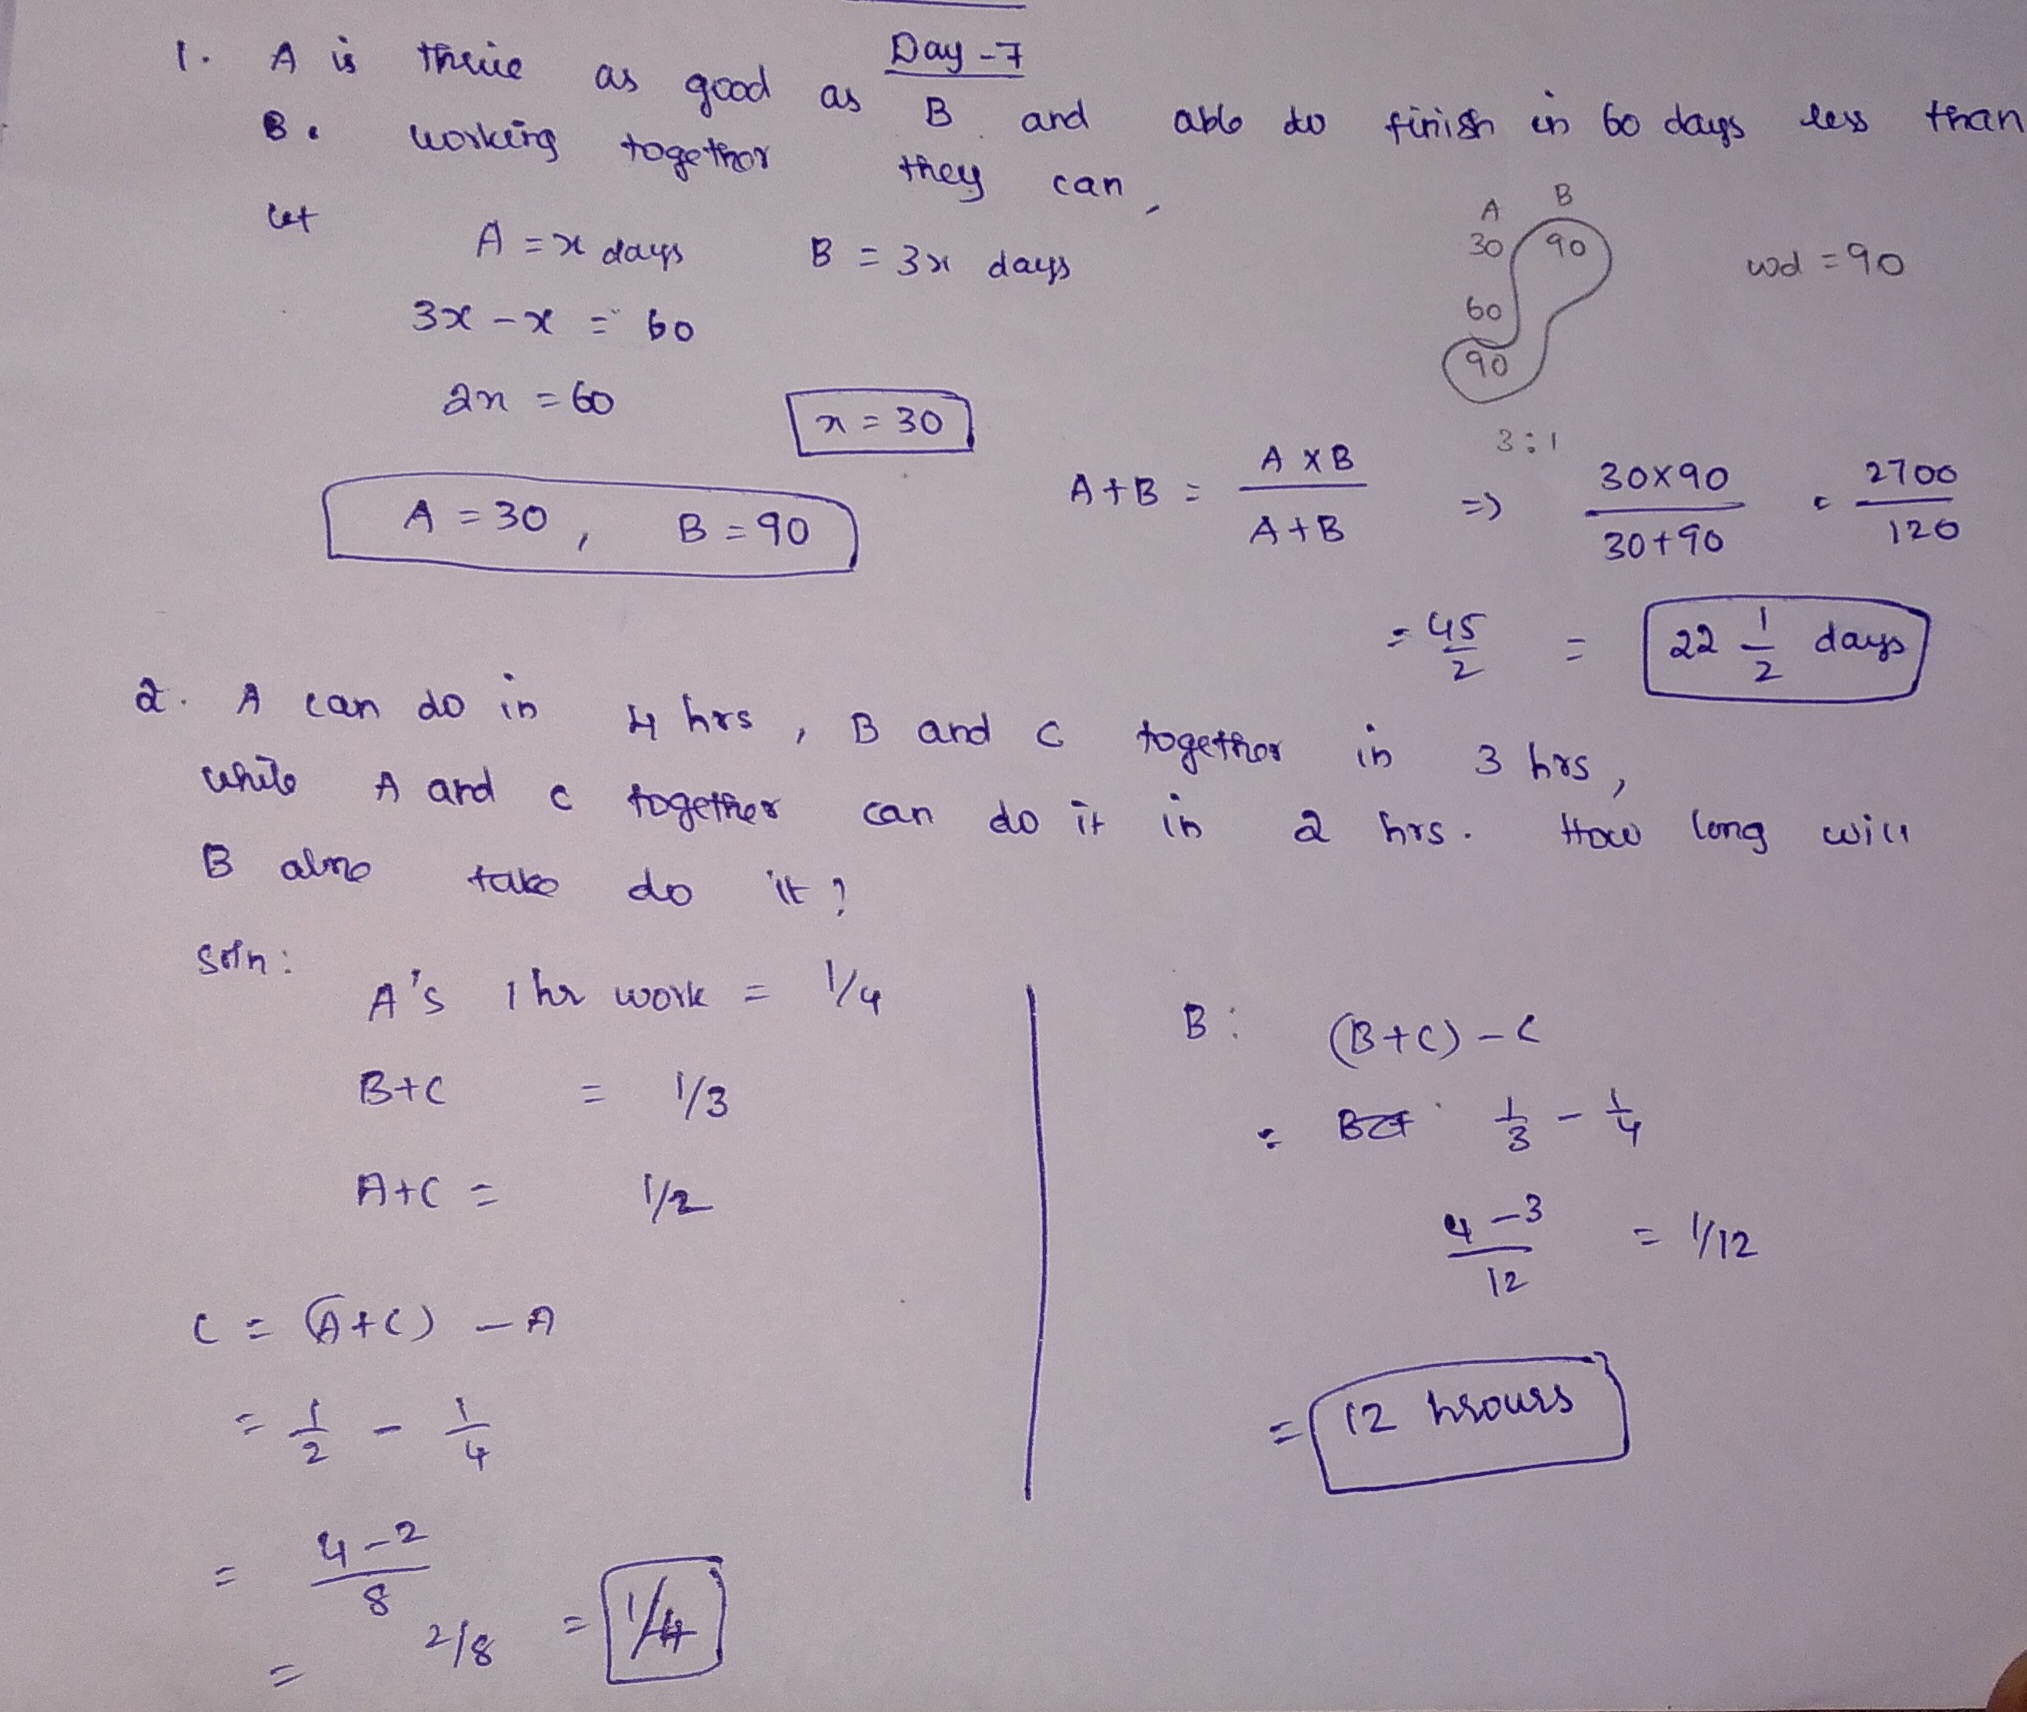 Day-7
1. A is thrice as good as B and able to finish in 60 days less than
B. working together they can,
let A = x days B = 3x days
3x - x = 60
2x = 60
x = 30
A = 30, B = 90
A B
30 90
60
90
3:1
wd = 90
A+B = A×B / A+B => 30×90 / 30+90 = 2700 / 120
= 45/2 = 22 1/2 days
2. A can do in 4 hrs, B and C together in 3 hrs,
while A and C together can do it in 2 hrs. How long will
B alone take do it?
Soln:
A's 1 hr work = 1/4
B+C = 1/3
A+C = 1/2
C = (A+C) - A
= 1/2 - 1/4
= 4-2 / 8
= 2/8 = 1/4
B: (B+C) - C
= 1/3 - 1/4
4-3 / 12 = 1/12
= 12 hrours